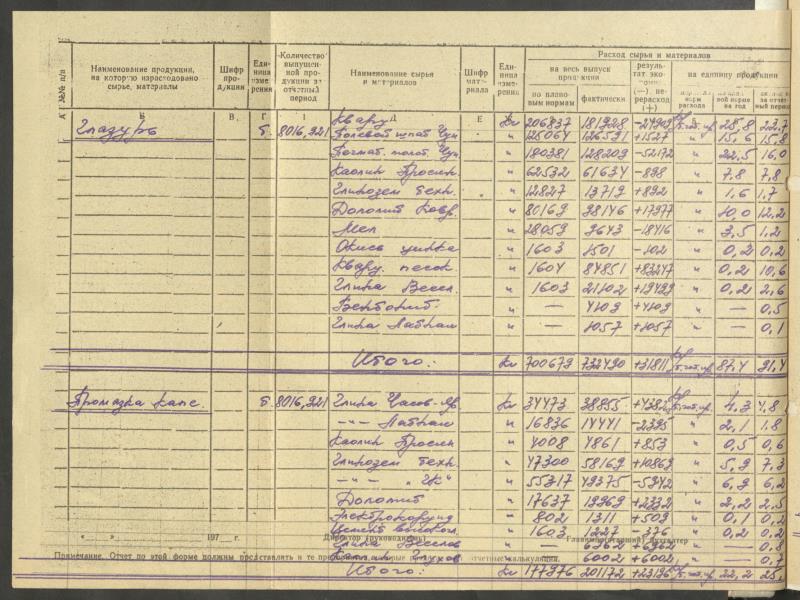 Расход сырья и материалов
№№ п/п
Наименование продукции, на которую израсходовано сырье, материалы
Шифр продукции
Единица измерения
Количество выпущенной продукции за отчетный период
Наименование сырья и материалов
Шифр материала
Единица измерения
на весь выпуск продукции
по плановым нормам
фактически
результат экономия (—) перерасход (+)
на единицу продукции
А Б В Г 1 Д Е
Глазурь т. 8016,921 Кварц Кг 206837 181928 -24909 25,8 22,7
Полевой шпат Чуп. " 125064 126591 +1527 " 15,6 15,8
Пегмат. молот. Чуп. " 180381 128209 -52172 " 22,5 16,0
Каолин Просян. " 62532 61634 -898 " 7,8 7,8
Глинозем техн. " 12827 13719 +892 " 1,6 1,7
Доломит Ковр. " 80169 98146 +17977 " 10,0 12,2
Мел " 28059 9643 -18416 " 3,5 1,2
Окись цинка " 1603 1501 -102 " 0,2 0,2
Кварц. песок " 1604 84851 +83247 " 0,2 10,6
Глина Весел. " 1603 21102 +19499 " 0,2 2,6
Бентонит " — 4109 +4109 " — 0,5
Глина Латная " — 1057 +1057 " — 0,1
Итого: Кг 700679 732490 +31811 87,4 91,4
Промазка капс. т. 8016,921 Глина Часов-Яр Кг 34473 38855 +4382 4,3 4,8
—"— Латная " 16836 14441 -2395 " 2,1 1,8
Каолин Просян " 4008 4861 +853 " 0,5 0,6
Глинозем техн. " 47300 58169 +10869 " 5,9 7,3
—"— "ГК" " 55317 49375 -5942 " 6,9 6,2
Доломит " 17637 19969 +2332 " 2,2 2,5
Электрокорунд " 802 1311 +509 " 0,1 0,2
" 1603 1227 -376 " 0,2 0,2
Глина Веселов " — 6962 +6962 " — 0,8
" — 6002 +6002 " — 0,7
« » 197 г. Директор (руководитель) Главный (старший) бухгалтер
Примечание. Отчет по этой форме должны представлять и те
отчетные калькуляции.
Итого: Кг 177976 201172 +23196 22,2 25,